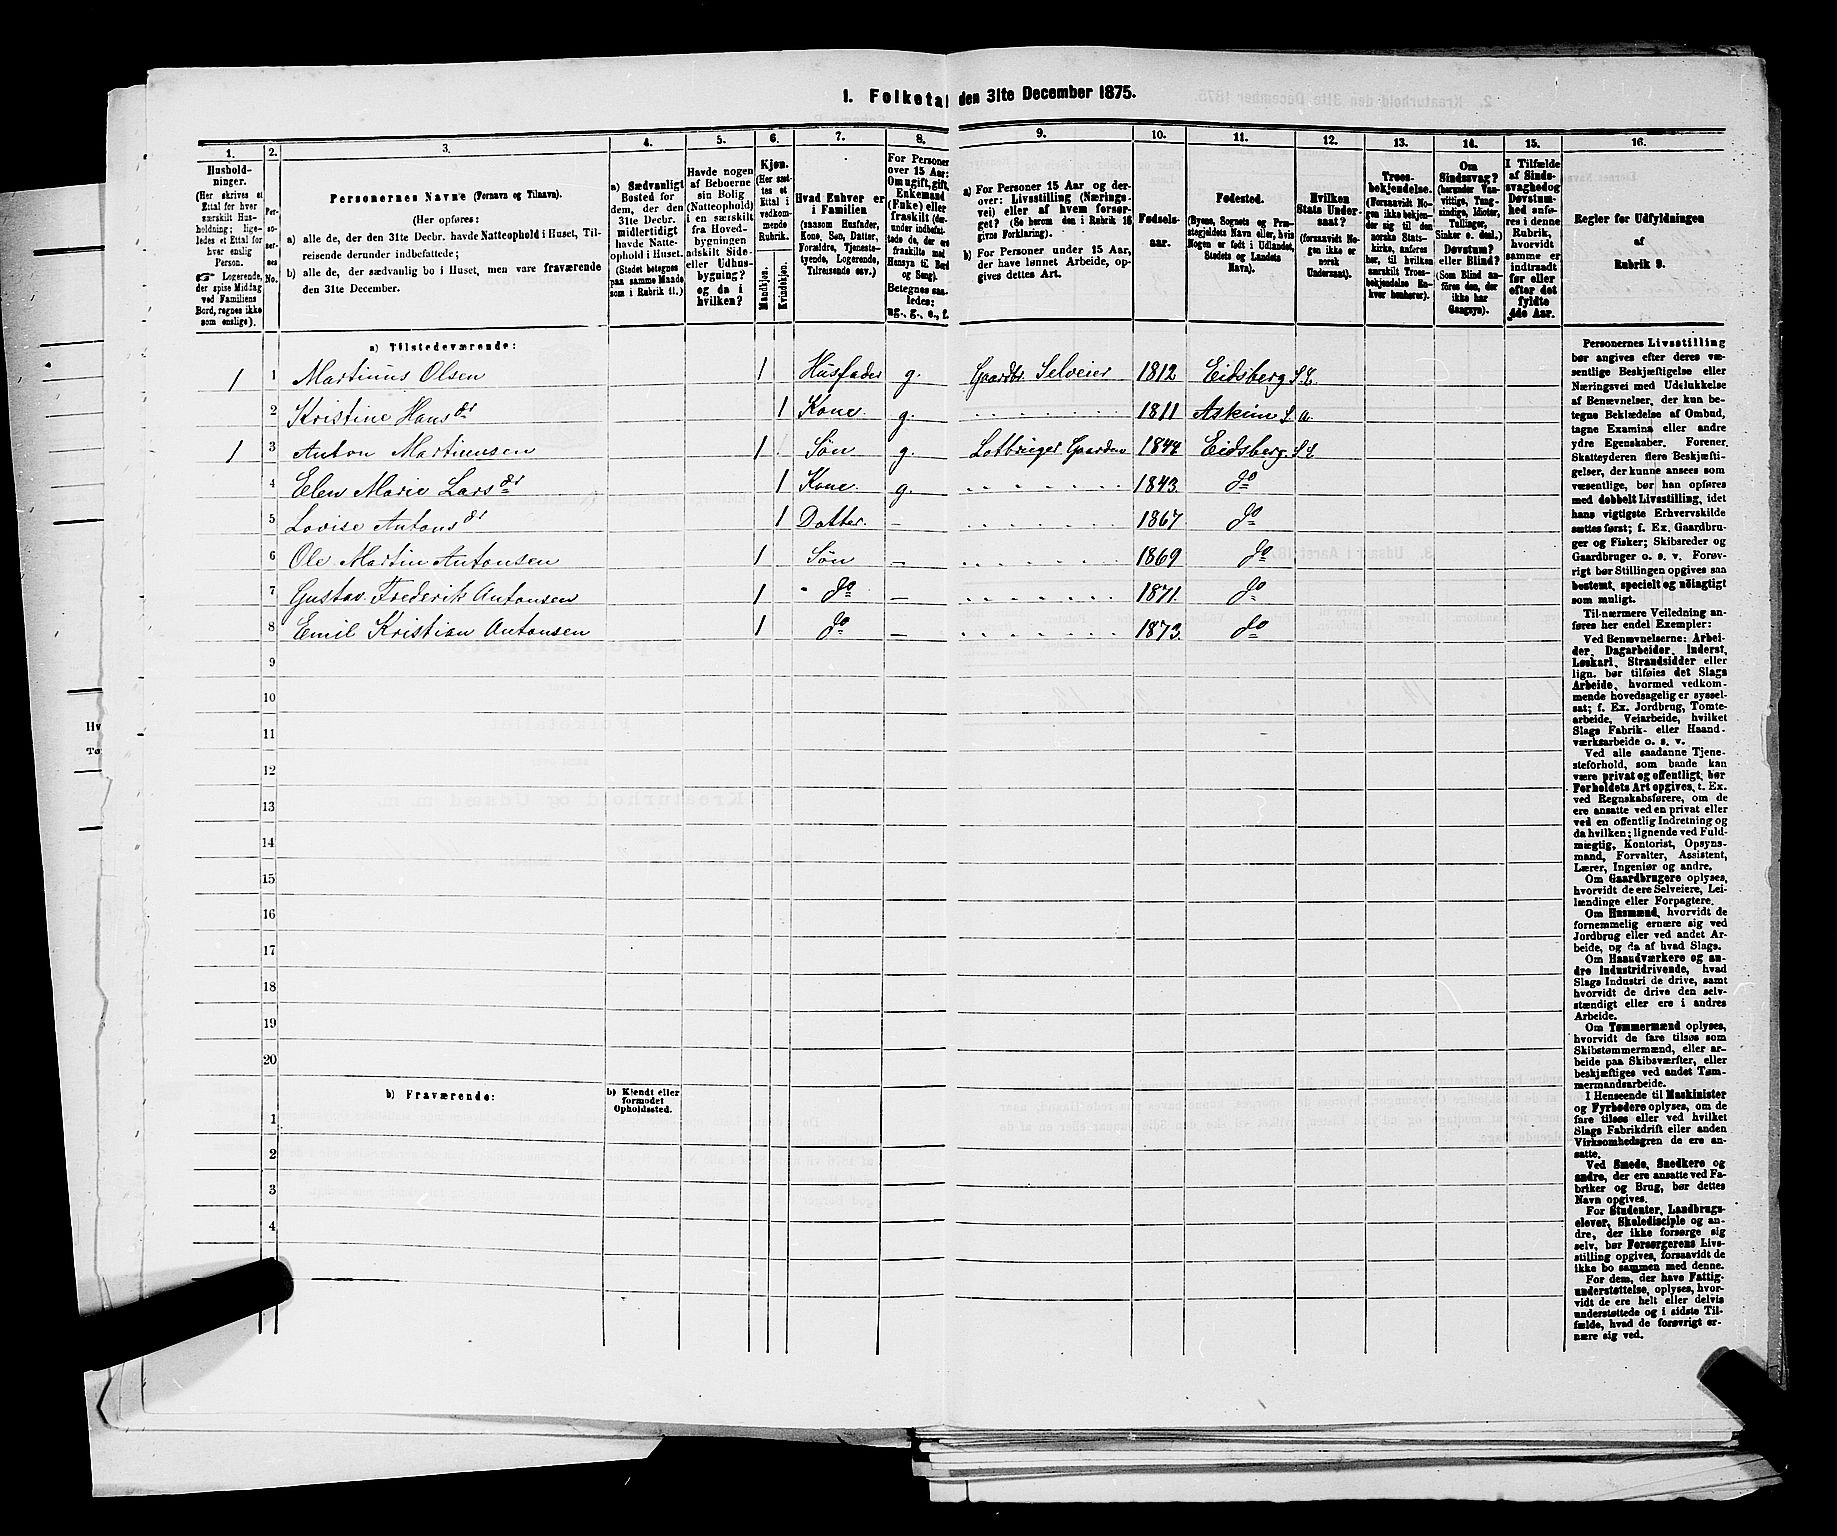 1. Folketal den 31te December 1875.
1. 2. 3. 4. 5. 6. 7. 8. 9. 10. 11. 12. 13. 14. 15. 16.
Husholdninger.
(Her skrives et
Ettal for hver
særskilt Husholdning;
ligeledes et Ettal for
hver enslig
Person.
☞ Logerende,
der spise Middag
ved Familiens
Bord, regnes ikke
som enslige).
Personernes No.
Personernes Navne (Fornavn og Tilnavn).
(Her opføres:
a) alle de, der den 31te Decbr. havde Natteophold i Huset, Tilreisende
derunder indbefattede;
b) alle de, der sædvanlig bo i Huset, men vare fraværende
den 31te December.
a) Sædvanligt
Bosted for
dem, der den
31te Decbr.
midlertidigt
havde Natteophold
i Huset.
(Stedet betegnes
paa samme Maade
som i Rubrik 11.)
Havde nogen
af Beboerne
sin Bolig
(Natteophold)
i en særskilt
fra Hovedbygningen
adskilt Side-
eller Udhusbygning?
og da i
hvilken?
Kjøn.
(Her sættes
et
Ettal i
vedkommende
Rubrik.
Mandkjøn.
Kvindekjøn.
Hvad Enhver er
i Familien
(saasom Husfader,
Kone, Søn, Datter,
Forældre, Tjenestetyende,
Logerende,
Tilreisende osv.)
For Personer
over 15 Aar:
Om ugift, gift,
Enkemand
(Enke) eller
fraskilt (derunder
indbefattede
de, der ere
fraskilte med
Hensyn til Bord
og Seng).
Betegnes saaledes:
ug., g., e., f.
a) For Personer 15 Aar og derover:
Livsstilling (Næringsvei)
eller af hvem forsørget?
(Se herom den i Rubrik 16
givne Forklaring).
b) For Personer under 15 Aar,
der have lønnet Arbeide, opgives
dettes Art.
Fødselsaar.
Fødested.
(Byens, Sognets og Præstegjeldets
Navn eller, hvis
Nogen er født i Udlandet,
Stedets og Landets
Navn).
Hvilken
Stats Undersaat?
(forsaavidt Nogen
ikke er
norsk
Undersaat).
Troesbekjendelse.
(Forsaavidt Nogen
ikke bekjender
sig til den
norske Statskirke,
anføres
her, til hvilken
særskilt Troesbekjendelse
Enhver
henhører).
Om
Sindssvag?
(herunder Vanvittige,
Tungsindige,
Idioter,
Tullinger,
Sinker o. desl.)
Døvstum?
eller Blind?
(Som Blind anføres
den, der
ikke har
Gangsyn).
I Tilfælde
af Sindssvaghed
og
Døvstumhed
anføres
i denne
Rubrik,
hvorvidt
samme er
indtraadt
før eller
efter det
fyldte
4de Aar.
Regler for Udfyldningen
af
Rubrik 9.
a) Tilstedeværende:
1 1 Martinus Olsen 1 Husfader g. Gaardbr. Selveier 1812 Eidsberg S. L.
2 Kristine Hansdr 1 Kone g. 1811 Askim S. a.
1 3 Anton Martinusen 1 Søn g. Lotbruger Gaarden 1844 Eidsberg S L
4 Elen Marie Larsdr 1 Kone. g. 1843. do
5 Lovise Antonsdr 1 Datter. — 1867 do
6 Ole Martin Antonsen 1 Søn — 1869 do
7 Gustav Frederik Antonsen 1 do — 1871. do
8 Emil Kristian Antonsen 1 do — 1873. do
9
10
11
12
13
14
15
16
17
18
19
20
b) Fraværende:
b) Kjendt eller
formodet
Opholdssted.
1
2
3
4
Personernes Livsstilling
bør angives efter deres væsentlige
Beskjæftigelse eller
Næringsvei med Udelukkelse
af Benævnelser, der kun betegne
Beklædelse af Ombud,
tagne Examina eller andre
ydre Egenskaber. Forener
Skatteyderen flere Beskjæftigelser,
der kunne ansees som
væsentlige, bør han opføres
med dobbelt Livsstilling, idet
hans vigtigste Erhvervskilde
sættes først; f. Ex. Gaardbruger
og Fisker; Skibsreder og
Gaardbruger o. s. v. Forøvrigt
bør Stillingen opgives saa
bestemt, specielt og nøiagtigt
som muligt.
Til nærmere Veiledning anføres
her endel Exempler:
Ved Benævnelserne: Arbeider,
Dagarbeider, Inderst,
Løskarl, Strandsidder eller
lign. bør tilføies det Slags
Arbeide, hvormed vedkommende
hovedsagelig er sysselsat;
f. Ex. Jordbrug, Tomtearbeide,
Veiarbeide, hvilket
Slags Fabrik- eller Haandværksarbeide
o. s. v.
Ved alle saadanne Tjenesteforhold,
som baade kan
være privat og offentligt, bør
Forholdets Art opgives, t. Ex.
ved Regnskabsførere, om de
ere ansatte ved en privat eller
ved en offentlig Indretning og
da hvilken; lignende ved Fuldmægtig,
Kontorist, Opsynsmand,
Forvalter, Assistent,
Lærer, Ingeniør og andre.
Om Gaardbrugere oplyses,
hvorvidt de ere Selveiere, Leilændinge
eller Forpagtere.
Om Husmænd, hvorvidt de
fornemmelig ernære sig ved
Jordbrug eller ved andet Arbeide,
og da af hvad Slags.
Om Haandværkere og andre
Industridrivende, hvad
Slags Industri de drive, samt
hvorvidt de drive den selvstændigt
eller ere i andres
Arbeide.
Om Tømmermænd oplyses,
hvorvidt de fare tilsøs som
Skibstømmermænd, eller arbeide
paa Skibsværfter, eller
beskjæftiges ved andet Tømmermandsarbeide.
I Henseende til Maskinister
og Fyrbødere oplyses, om de
fare tilsøs eller ved hvilket
Slags Fabrikdrift eller anden
Virksomhedsgren de ere ansatte.
Ved Smede, Snedkere og
andre, der ere ansatte ved Fabriker
og Brug, bør dettes
Navn opgives.
For Studenter, Landbrugselever,
Skoledisciple og andre,
der ikke forsørge sig
selv, bør Forsørgerens Livsstilling
opgives, forsaavidt de
ikke bo sammen med denne.
For dem, der have Fattigunderstøttelse,
oplyses, hvorvidt
de ere helt eller delvis
understøttede og i sidste Tilfælde,
hvad de forøvrigt ernære
sig ved.